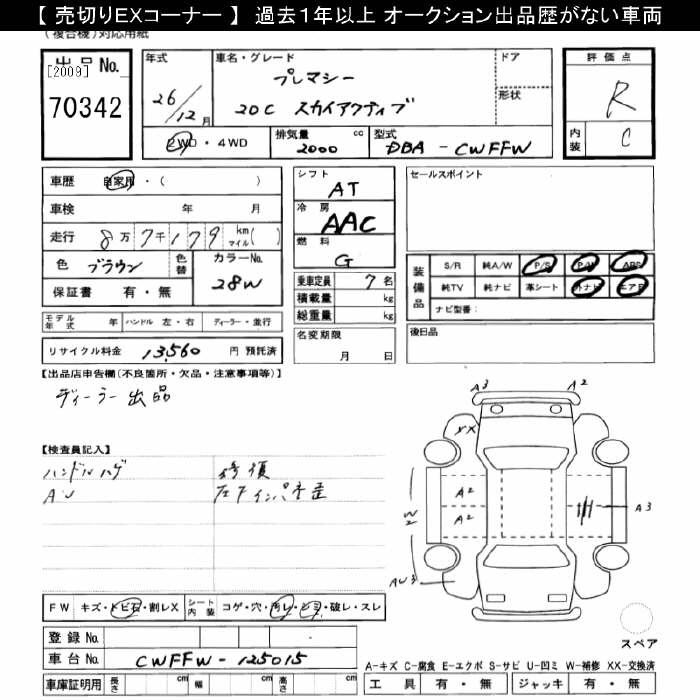 【 売切りEXコーナー 】 過去1年以上 オークション出品歴がない車両
(複合機)対応用紙
出 品 No.
[2009]
70342
年式
26/12月
車名・グレード
プレマシー
20C スカイアクティブ
ドア
形状
評 価 点
R
内装
C
2WD・4WD
排気量 cc
2000
型式
DBA - CWFFW
車歴 自家用・( )
車検 年 月
走行 8万7千179 km マイル( )
色 ブラウン
色替
カラーNo.
28W
保証書 有・無
シフト
AT
冷 房
AAC
燃 料
G
乗車定員 7 名
積載量 kg
総重量 kg
セールスポイント
装備品
S/R 純A/W P/S P/W ABS
純TV 純ナビ 革シート 外ナビ エアB
ナビ型番:
モデル年式 年 ハンドル 左・右 ディーラー・並行
名変期限
月 日
後日品
リサイクル料金 13,560 円 預託済
【出品店申告欄(不良箇所・欠品・注意事項等)】
ディーラー出品
【検査員記入】
ハンドルハゲ
AW
修復
A3
A2
XX
A2
A2
W2
A3
AW3
FW キズ・トビ石・割レX
シート内装 コゲ・穴・汚レ・シミ・破レ・スレ
登録 No.
車台 No. CWFFW-125015
車庫証明用 長さ cm 幅 cm 高さ cm
スペア
A-キズ C-腐食 E-エクボ S-サビ U-凹ミ W-補修 XX-交換済
工 具 有・無 ジャッキ 有・無